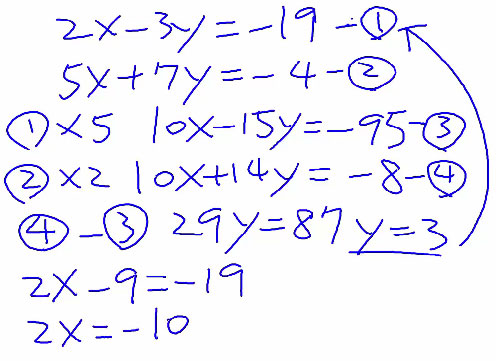 2x-3y=-19-①
5x+7y=-4-②
①×5 10x-15y=-95-③
②×2 10x+14y=-8-④
④-③ 29y=87 y=3
2x-9=-19
2x=-10